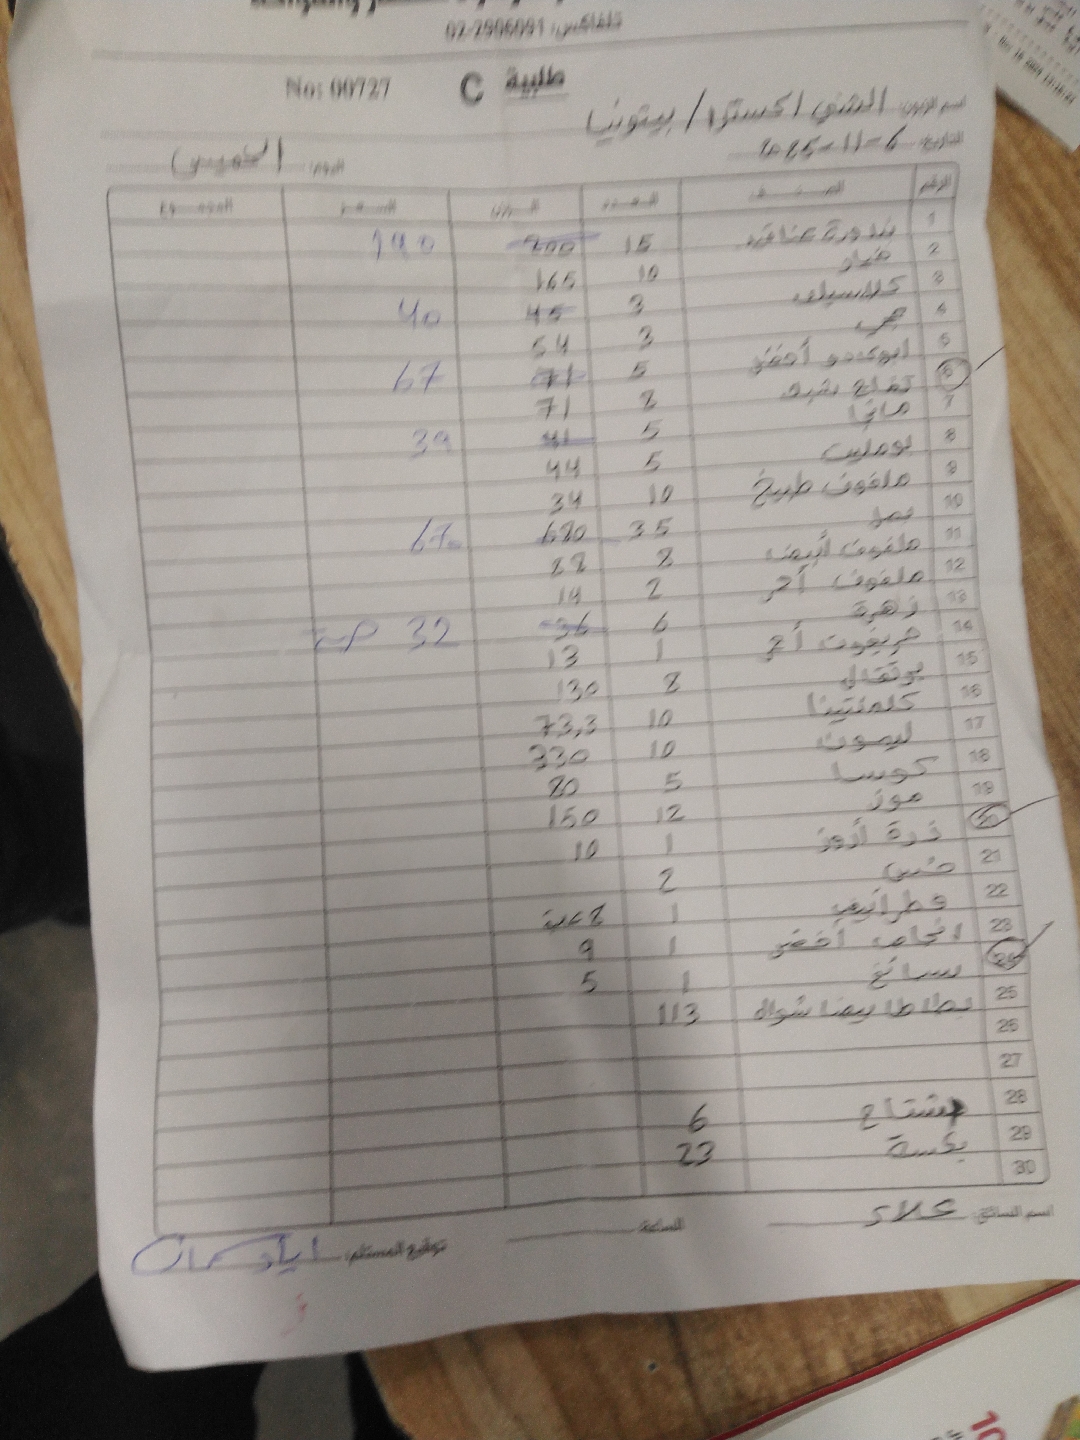 تلفاكس: 02-2906091
طلبية C No: 00727
اسم الزبون: الشني اكسترا / بيتونيا
التاريخ: 2025-11-6
اليوم: الخميس
الرقم الصنف العدد الوزن السعر المجموع
1 بندورة عناقيد 15 200 190
2 خيار 10 165
3 كلاسيك 3 45 40
4 3 54
5 ابوكدو أخضر 5 71 67
6 تفاح 8 71
7 مانجا 5 41 39
8 بومليت 5 44
9 ملفوف طبيخ 10 34
10 بصل 35 680 670
11 ملفوف أبيض 8 88
12 ملفوف أحمر 2 14
13 زهرة 6 36 32
14 1 13
15 برتقال 8 130
16 كلمنتينا 10 73,3
17 ليمون 10 330
18 كوسا 5 80
19 موز 12 150
20 ذرة 1 10
21 خس 2
22 1 8
23 أخضر 1 9
24 سبانخ 1 5
25 بطاطا بيضا شوال 113
26
27
28 مشتاح 6
29 بكسة 23
30
اسم السائق: علاء الساعة توقيع المستلم: